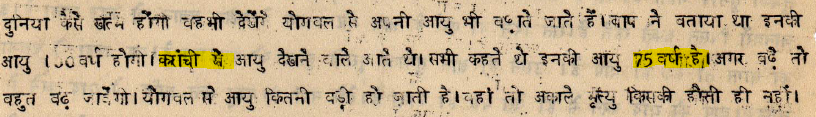 दुनिया कैसे खत्म होगी वह भी देखेंगे योगबल से अपनी आयु भी बढ़ाते जाते हैं। बाप ने बताया था इनकी
आयु 100 वर्ष होगी। करांची में आयु देखने वाले आते थे। सभी कहते थे इनकी आयु 75 वर्ष है। अगर बढ़े तो
बहुत बढ़ जावेगी। योगबल से आयु कितनी बड़ी हो जाती है। वहां तो अकाले मृत्यु किसकी होती ही नहीं।